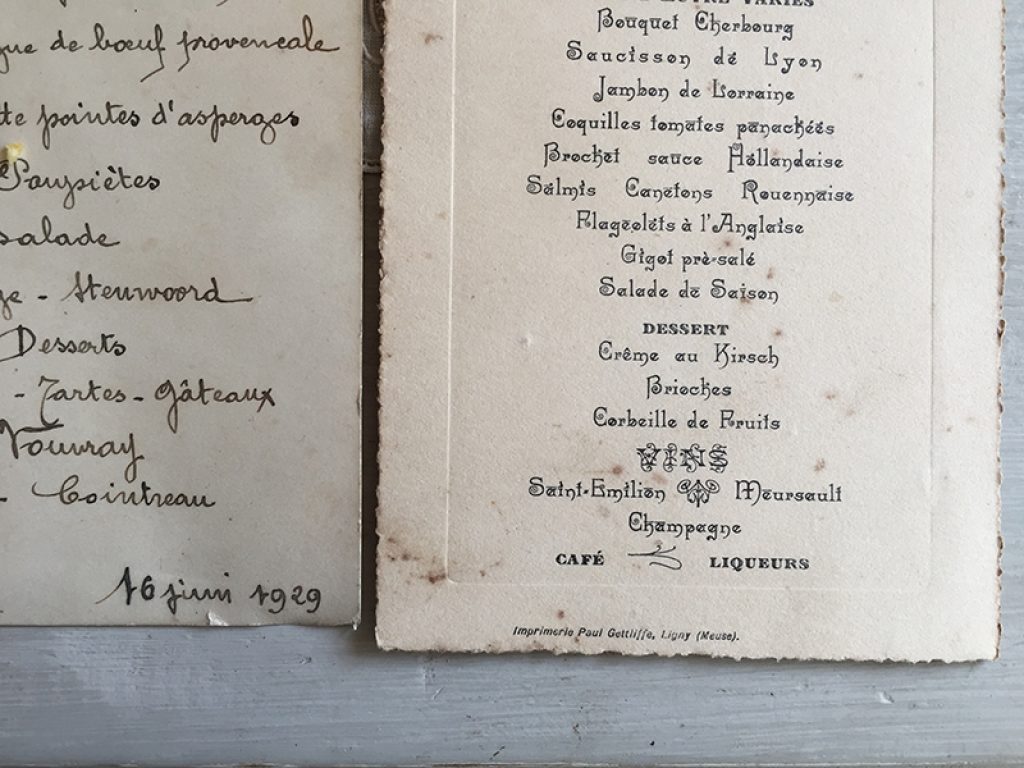 de bœuf provencale
pointes d'asperges
Paupiètes
salade
- Stenwoord
Desserts
- Tartes - Gâteaux
Vouvray
- Cointreau
16 juin 1929
VARIÉS
Bouquet Cherbourg
Saucisson de Lyon
Jambon de Lorraine
Coquilles tomates panachées
Brochet sauce Hollandaise
Salmis Canetons Rouennaise
Flageolets à l'Anglaise
Gigot pré-salé
Salade de Saison
DESSERT
Crême au Kirsch
Brioches
Corbeille de Fruits
VINS
Saint-Emilion Meursault
Champagne
CAFÉ LIQUEURS
Imprimerie Paul Gettliffe, Ligny (Meuse).